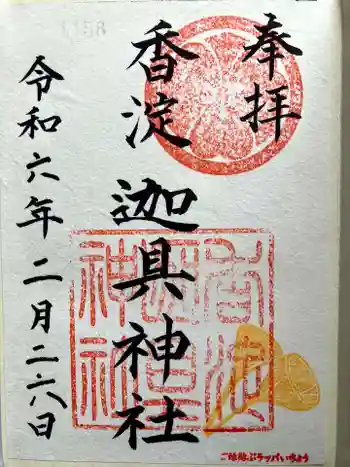 奉拝
香淀迦具神社
令和六年二月二六日
香淀
迦具
神社
ご縁結ぶラッパいちょう
1158